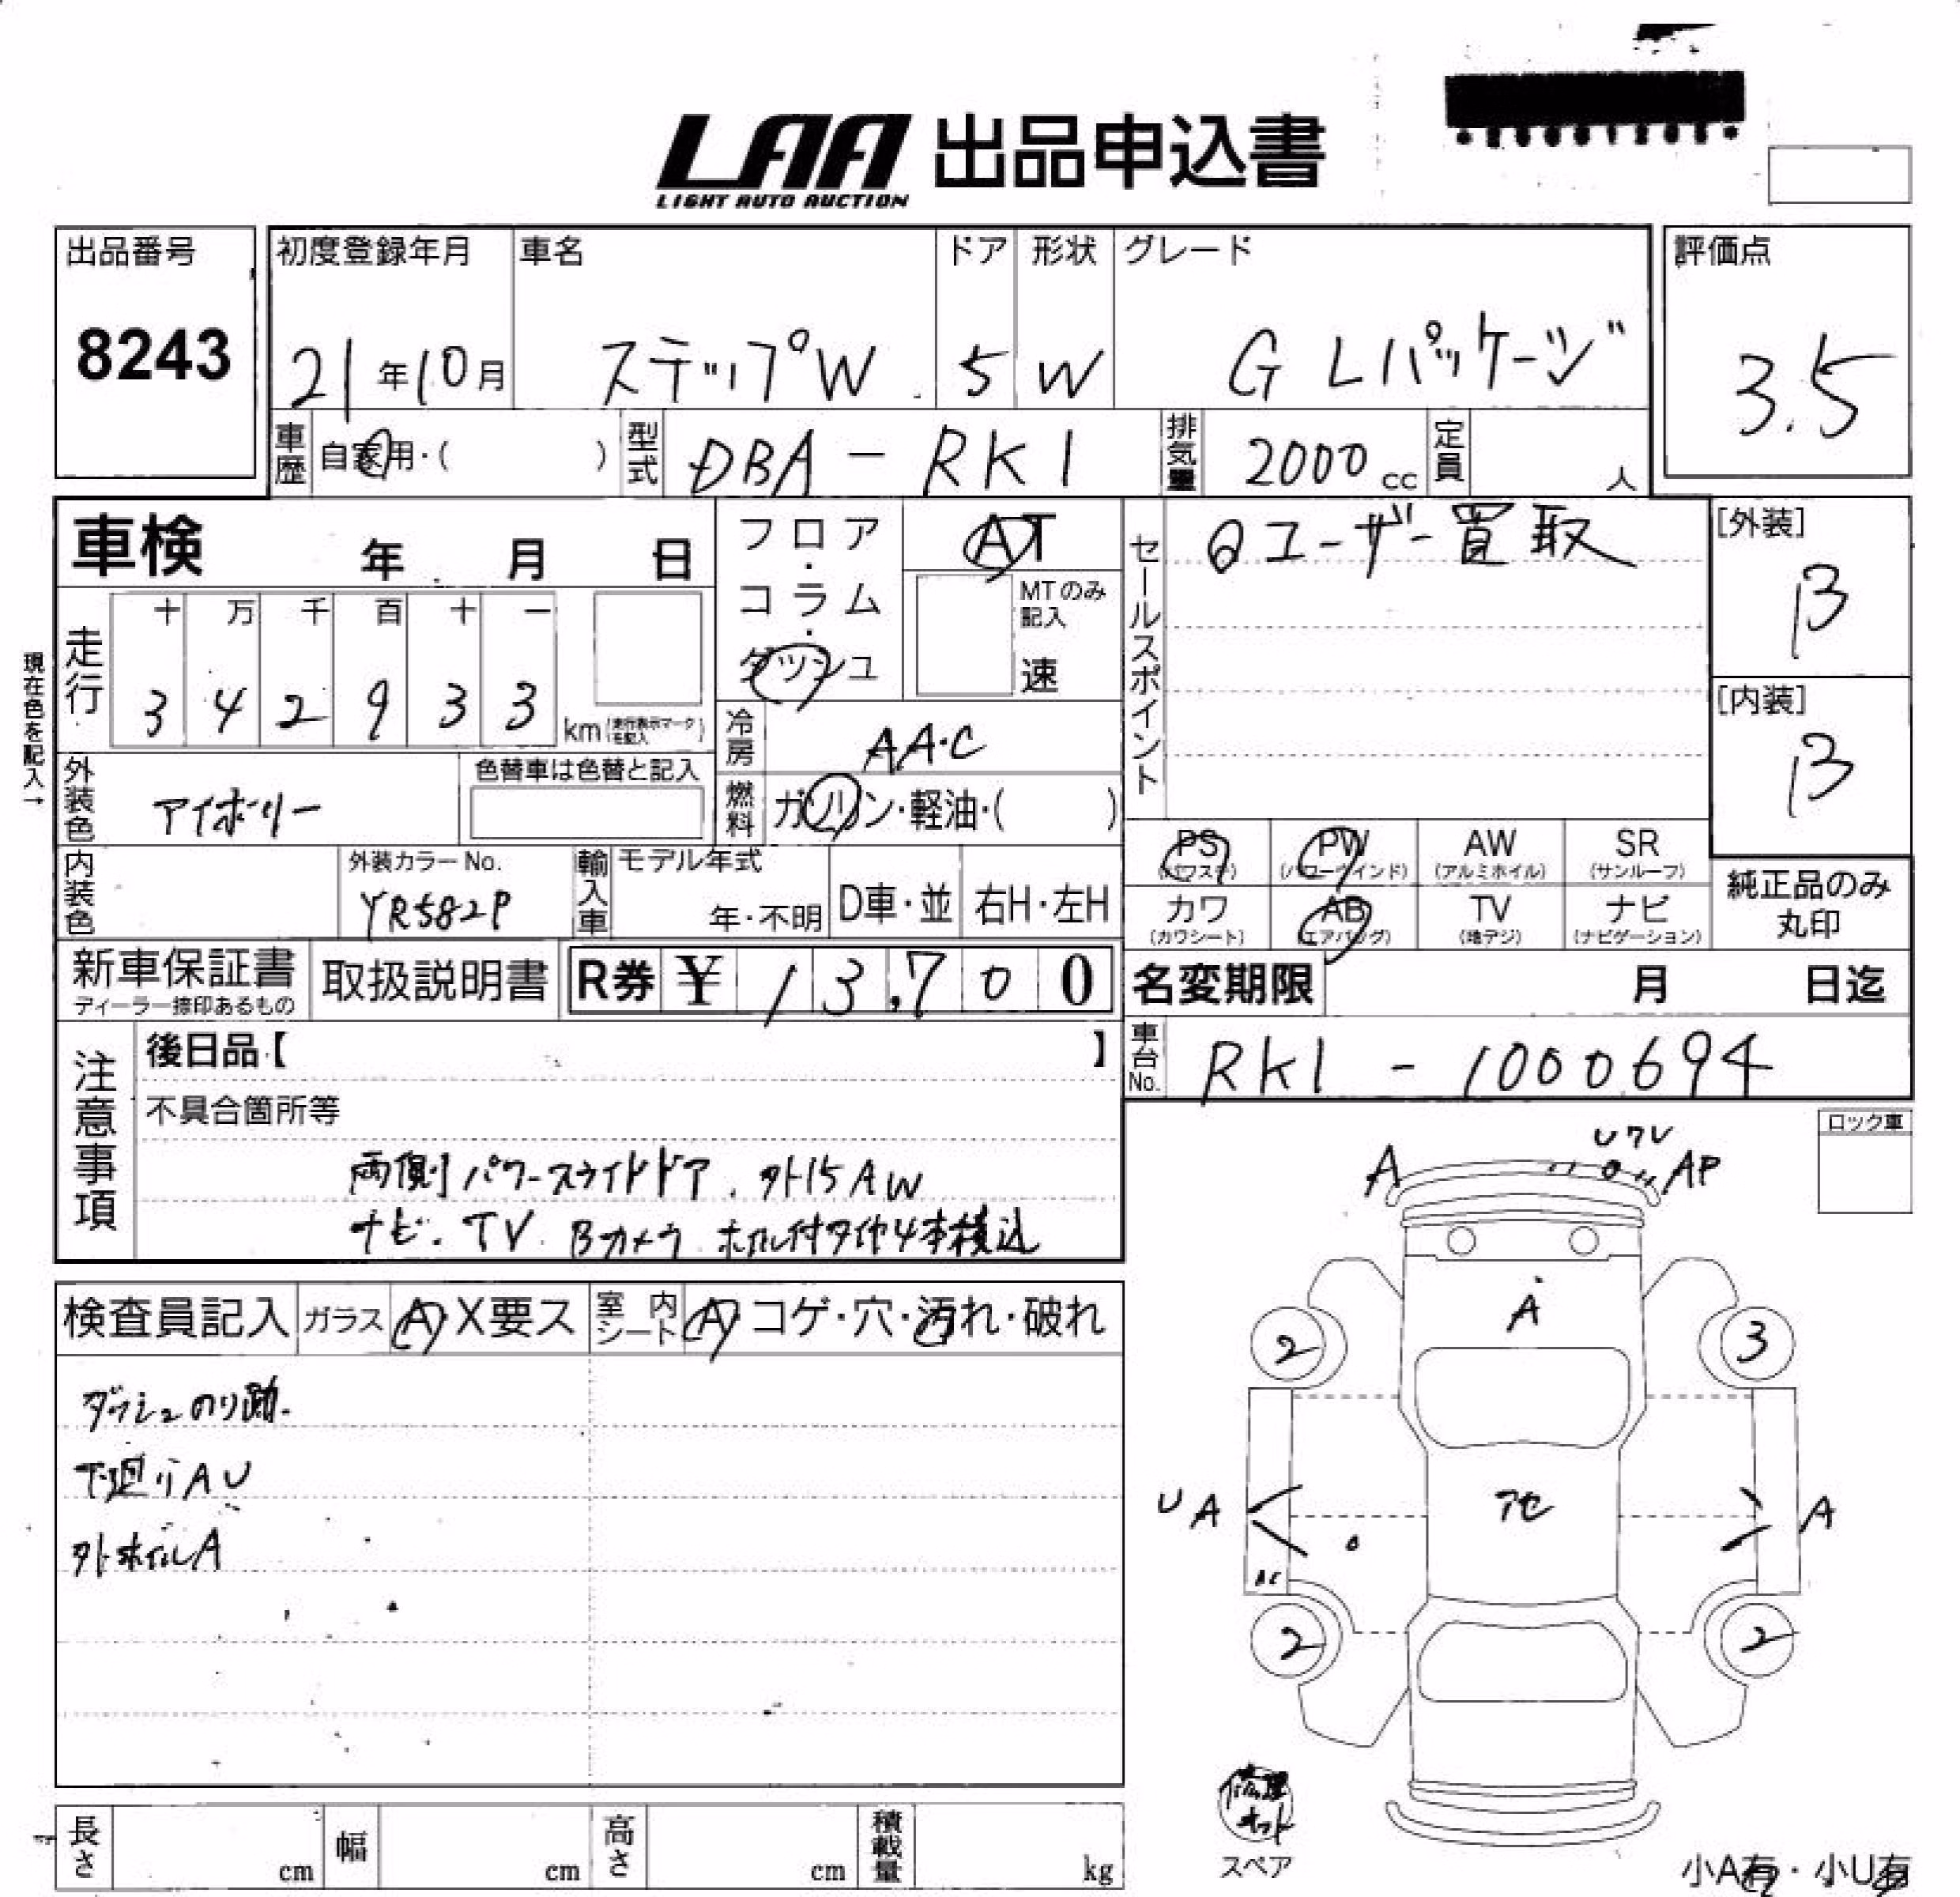 LAA 出品申込書
LIGHT AUTO AUCTION
出品番号
8243
初度登録年月
21年10月
車名
ステップW
ドア
5
形状
W
グレード
G Lパッケージ
評価点
3.5
車歴 自家用・( )
型式 DBA-RK1
排気量 2000cc
定員 人
車検 年 月 日
フロア・コラム・ダッシュ
AT
MTのみ記入
速
セールスポイント
ユーザー買取
[外装]
B
[内装]
B
現在色を記入→
走行
十 万 千 百 十 一
3 4 2 9 3 3 km (走行表示マークを記入)
冷房 AA・C
外装色 アイボリー
色替車は色替と記入
燃料 ガソリン・軽油・( )
内装色
外装カラーNo.
YR582P
輸入車
モデル年式
年・不明
D車・並
右H・左H
PS (パワステ)
PW (パワーウインド)
AW (アルミホイル)
SR (サンルーフ)
カワ (カワシート)
AB (エアバッグ)
TV (地デジ)
ナビ (ナビゲーション)
純正品のみ
丸印
新車保証書
ディーラー捺印あるもの
取扱説明書
R券 ¥ 13,700
名変期限 月 日迄
車台No. RK1-1000694
注意事項
後日品【 】
不具合箇所等
両側パワースライドドア、外15AW
ナビ、TV Bカメラ ホイル付タイヤ4本積込
ロック車
検査員記入
ガラス A X要ス
室内シート A コゲ・穴・汚れ・破れ
ダッシュのり跡
下廻りAU
外ホイルA
A
AP
A
2
3
アセ
UA
A
2
2
修理キット
スペア
長さ cm
幅 cm
高さ cm
積載量 kg
小A有・小U有